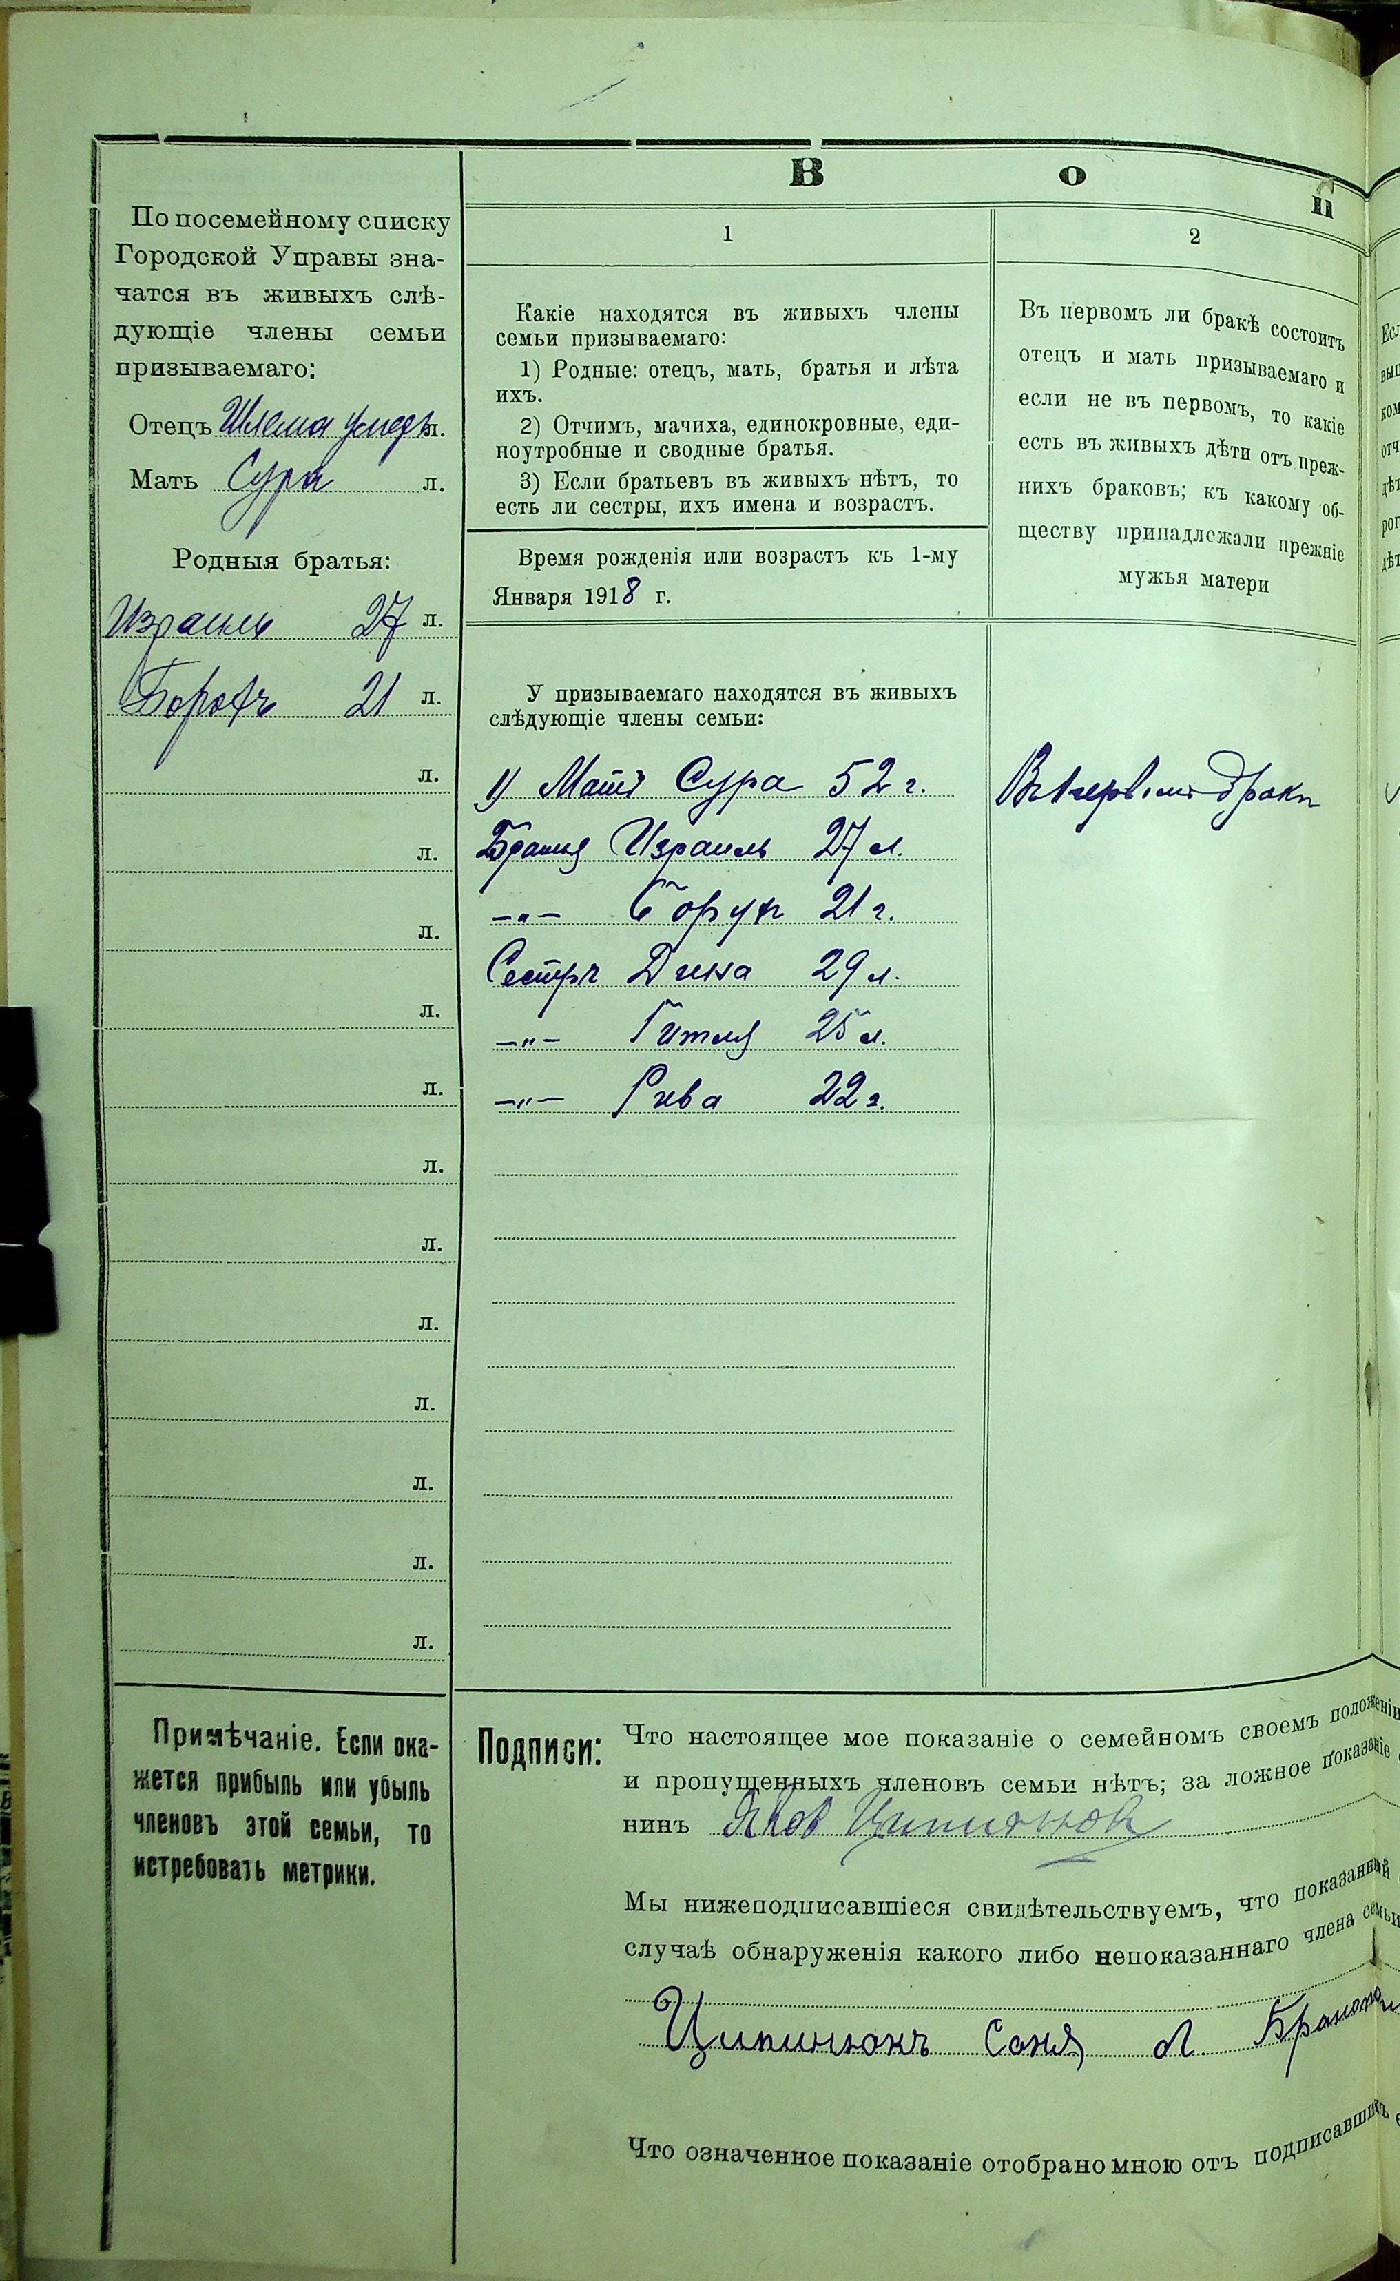 В о п
По посемейному списку
Городской Управы зна-
чатся въ живыхъ слѣ-
дующіе члены семьи
призываемаго:
Отецъ Шлема умеръ л.
Мать Сура л.
Родныя братья:
Израиль 27 л.
Борохъ 21 л.
л.
л.
л.
л.
л.
л.
л.
л.
л.
л.
л.
л.
Примѣчаніе. Если ока-
жется прибыль или убыль
членовъ этой семьи, то
истребовать метрики.
1
Какіе находятся въ живыхъ члены
семьи призываемаго:
1) Родные: отецъ, мать, братья и лѣта
ихъ.
2) Отчимъ, мачиха, единокровные, еди-
ноутробные и сводные братья.
3) Если братьевъ въ живыхъ нѣтъ, то
есть ли сестры, ихъ имена и возрастъ.
Время рожденія или возрастъ къ 1-му
Января 1918 г.
У призываемаго находятся въ живыхъ
слѣдующіе члены семьи:
1) Мать Сура 52 г.
Братья Израиль 27 л.
—„— Борух 21 г.
Сестры Дина 29 л.
—„— Гитля 25 л.
—„— Рива 22 г.
2
Въ первомъ ли бракѣ состоитъ
отецъ и мать призываемаго и
если не въ первомъ, то какіе
есть въ живыхъ дѣти отъ преж-
нихъ браковъ; къ какому об-
ществу принадлежали прежніе
мужья матери
Въ первомъ бракѣ
Подписи:
Что настоящее мое показаніе о семейномъ своемъ положеніи
и пропущенныхъ членовъ семьи нѣтъ; за ложное показаніе
нинъ Яков Ципинюк
Мы нижеподписавшіеся свидѣтельствуемъ, что показанный
случаѣ обнаруженія какого либо непоказаннаго члена семьи
Ципинюкъ Соня
Что означенное показаніе отобрано мною отъ подписавшихъ